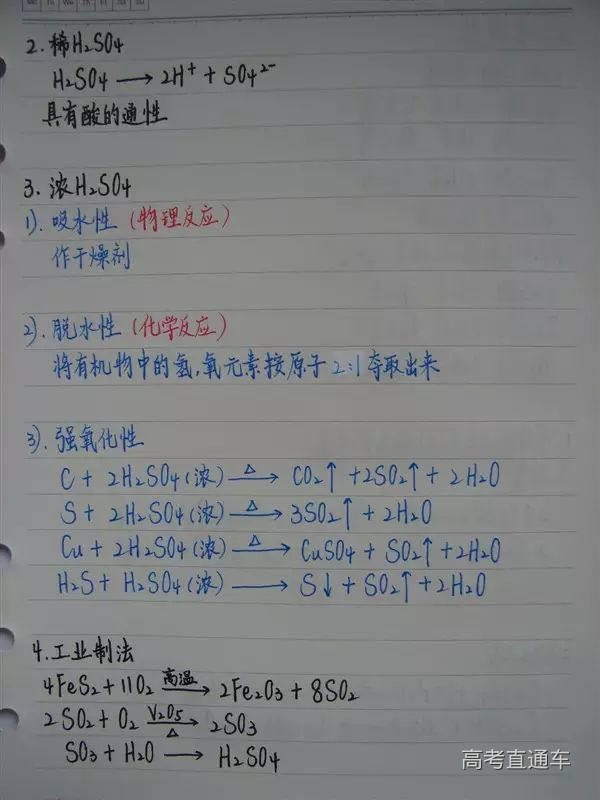 2. 稀H₂SO₄
H₂SO₄ ⟶ 2H⁺ + SO₄²⁻
具有酸的通性
3. 浓H₂SO₄
1). 吸水性 (物理反应)
作干燥剂
2). 脱水性 (化学反应)
将有机物中的氢,氧元素按原子2:1夺取出来
3). 强氧化性
C + 2H₂SO₄(浓) —△→ CO₂↑ +2SO₂↑ + 2H₂O
S + 2H₂SO₄(浓) —△→ 3SO₂↑ + 2H₂O
Cu + 2H₂SO₄(浓) —△→ CuSO₄ + SO₂↑ +2H₂O
H₂S + H₂SO₄(浓) ⟶ S↓ + SO₂↑ +2H₂O
4. 工业制法
4FeS₂ + 11O₂ —高温→ 2Fe₂O₃ + 8SO₂
2SO₂ + O₂ —V₂O₅/△→ 2SO₃
SO₃ + H₂O ⟶ H₂SO₄
高考直通车